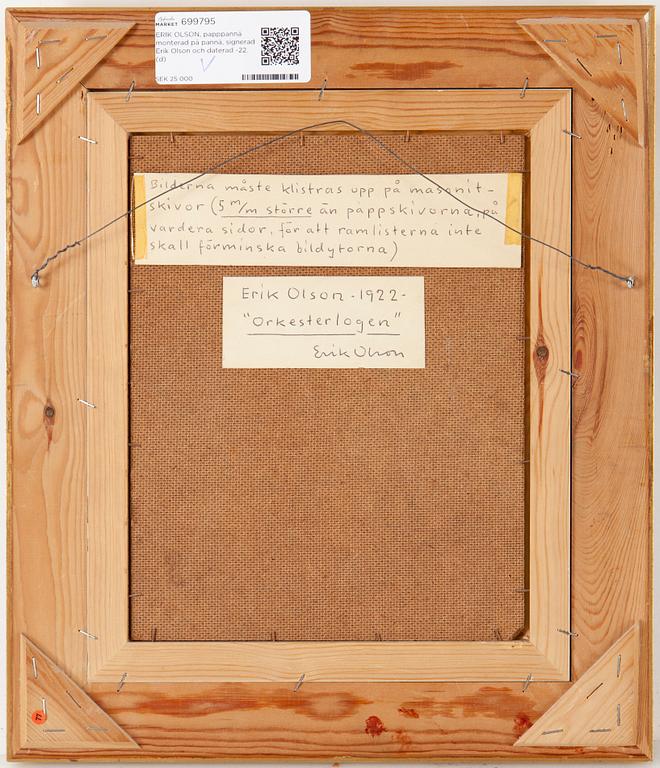 MARKET 699795
ERIK OLSON, papppannå
monterad på pannå, signerad
Erik Olson och daterad -22.
(d)
SEK 25 000
Bilderna måste klistras upp på masonit-
skivor (5 m/m större än pappskivorna, på
vardera sidor, för att ramlisterna inte
skall förminska bildytorna)
Erik Olson - 1922 -
"Orkesterlogen"
Erik Olson
77